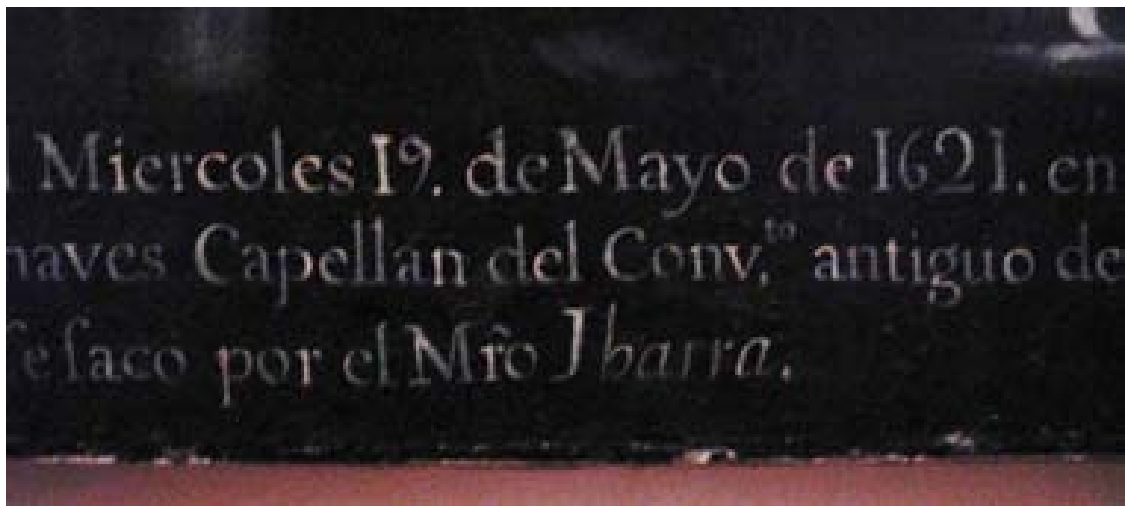 l Miercoles 19. de Mayo de 1621. en
haves Capellan del Conv,ᵗᵒ antiguo de
ſe ſaco por el Mr̃o Ibarra.